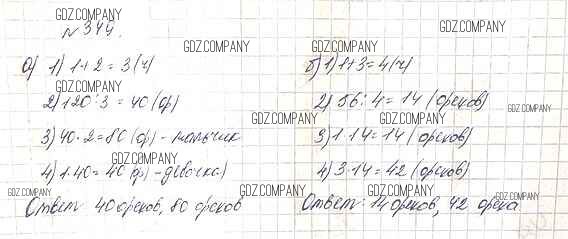 GDZ.COMPANY
№344.
GDZ.COMPANY
GDZ.COMPANY GDZ.COMPANY
а) 1) 1+2=3(ч)
GDZ.COMPANY
2) 120:3=40(ор)
3) 40·2=80(ор)-мальчик
GDZ.COMPANY
4) 1·40=40(ор)-девочка)
GDZ.COMPANY
Ответ: 40 орехов, 80 орехов
б) 1) 1+3=4(ч)
GDZ.COMPANY
2) 56:4=14 (орехов)
GDZ.COMPANY GDZ.COMPANY
3) 1·14=14 (орехов)
4) 3·14=42 (орехов)
GDZ.COMPANY GDZ.COMPANY GDZ.COMPANY
Ответ: 14 орехов, 42 ореха